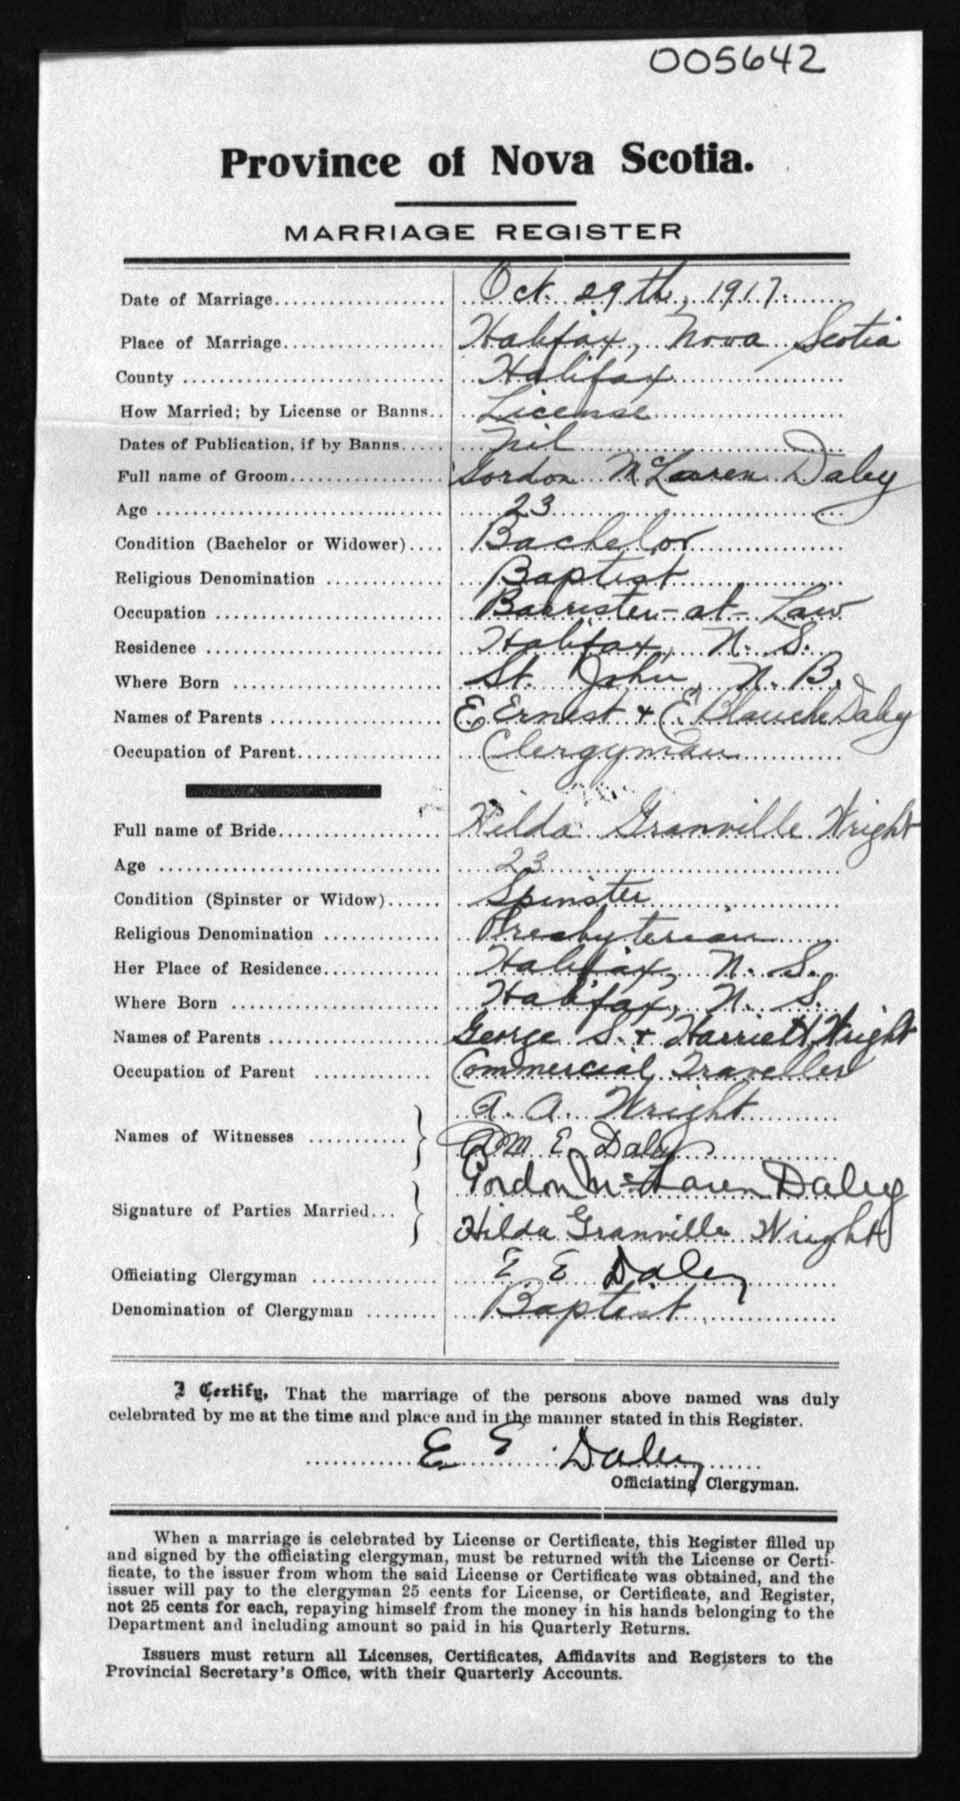 005642
Province of Nova Scotia.
MARRIAGE REGISTER
Date of Marriage Oct. 29th, 1917.
Place of Marriage Halifax, Nova Scotia
County Halifax
How Married; by License or Banns License
Dates of Publication, if by Banns Nil
Full name of Groom Gordon McLaren Daley
Age 23
Condition (Bachelor or Widower) Bachelor
Religious Denomination Baptist
Occupation Barrister-at-Law
Residence Halifax, N. S.
Where Born St. John, N. B.
Names of Parents E. Ernest & E. Blanche Daley
Occupation of Parent Clergyman
Full name of Bride Hilda Granville Wright
Age 23
Condition (Spinster or Widow) Spinster
Religious Denomination Presbyterian
Her Place of Residence Halifax, N. S.
Where Born Halifax, N. S.
Names of Parents George S. & Harriett Wright
Occupation of Parent Commercial Traveller
A. A. Wright
Names of Witnesses
M. E. Daley
Gordon McLaren Daley
Signature of Parties Married...
Hilda Granville Wright
Officiating Clergyman E E Daley
Denomination of Clergyman Baptist
I Certify, That the marriage of the persons above named was duly
celebrated by me at the time and place and in the manner stated in this Register.
E E Daley
Officiating Clergyman.
When a marriage is celebrated by License or Certificate, this Register filled up
and signed by the officiating clergyman, must be returned with the License or Certi-
ficate, to the issuer from whom the said License or Certificate was obtained, and the
issuer will pay to the clergyman 25 cents for License, or Certificate, and Register,
not 25 cents for each, repaying himself from the money in his hands belonging to the
Department and including amount so paid in his Quarterly Returns.
Issuers must return all Licenses, Certificates, Affidavits and Registers to the
Provincial Secretary's Office, with their Quarterly Accounts.